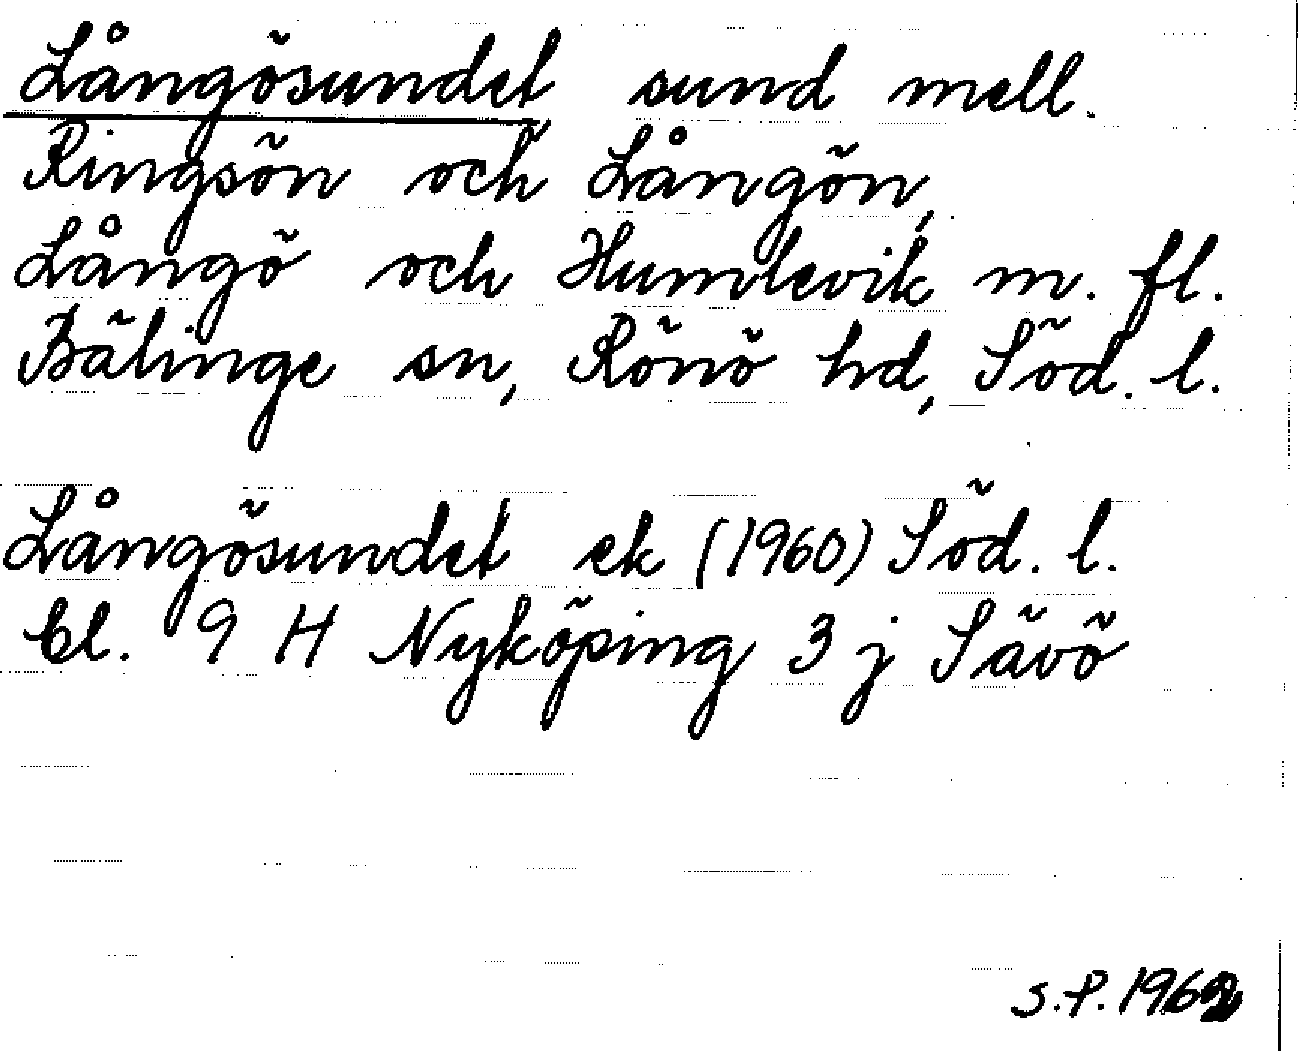 Långösundet sund mell.
Ringsön och Långön,
Långö och Humlevik m. fl.
Bälinge sn, Rönö hd, Söd. l.
Långösundet ek (1960) Söd. l.
bl. 9 H Nyköping 3 j Sävö
S.P. 1962